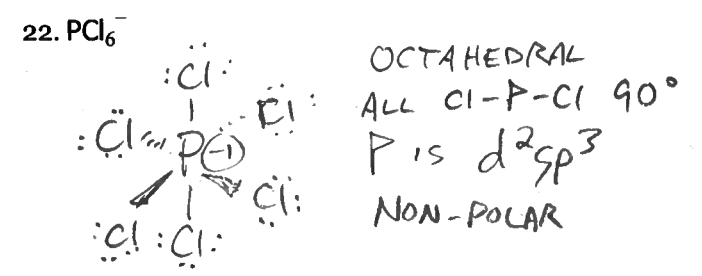 22. PCl₆⁻
Cl
Cl P(-1) Cl
Cl Cl Cl
OCTAHEDRAL
ALL Cl-P-Cl 90°
P is d²sp³
NON-POLAR